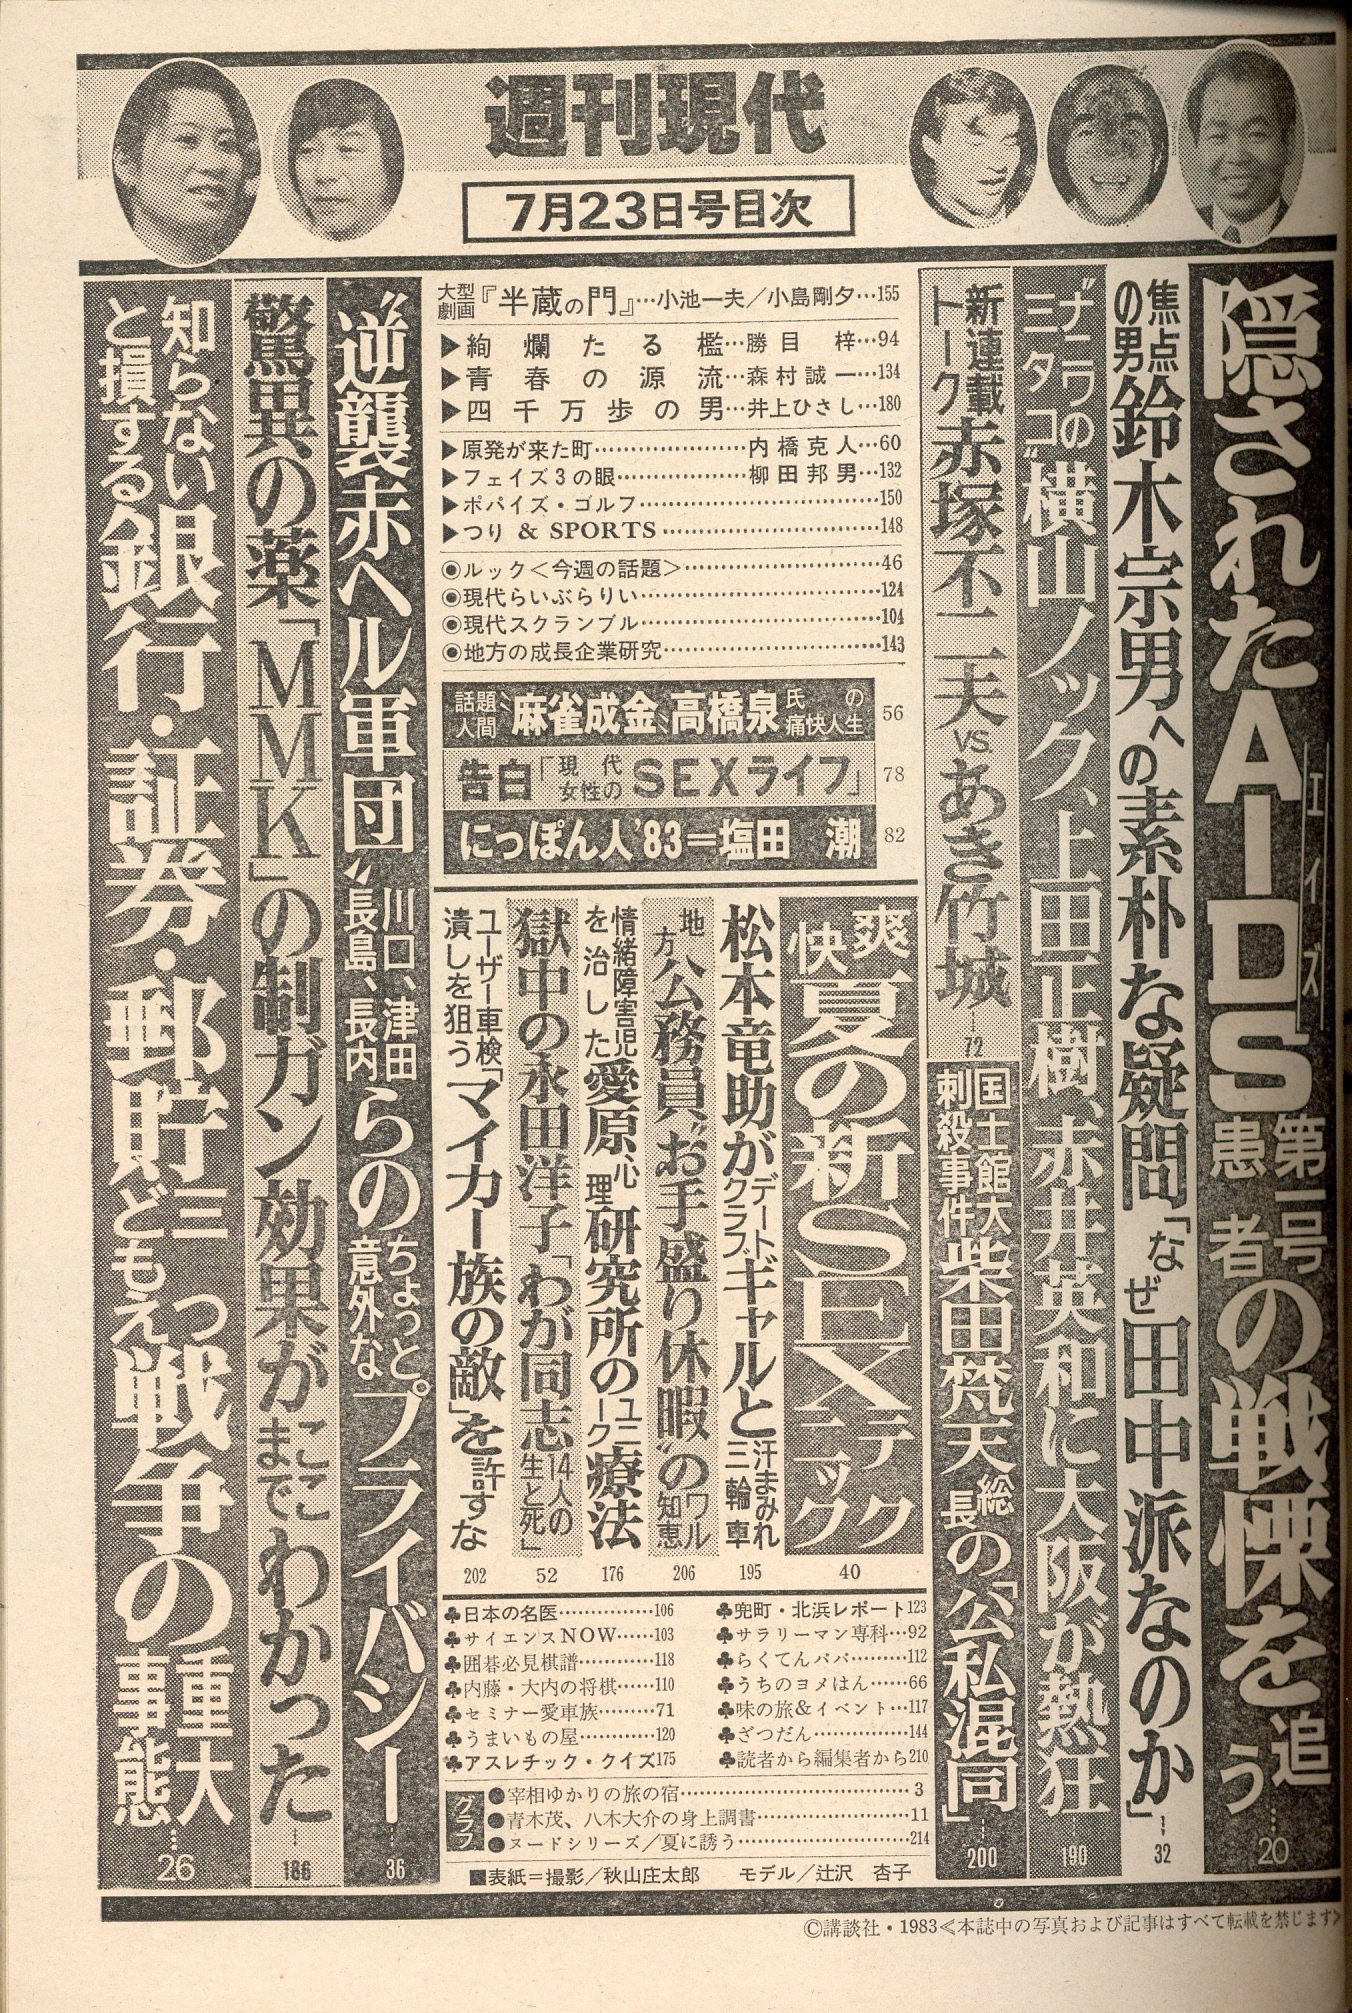 週刊現代
7月23日号目次
隠されたAIDS 第一号患者の戦慄を追う…20
エイズ
焦点の男 鈴木宗男への素朴な疑問「なぜ田中派なのか」…32
ナニワの〝ミニタコ〟横山ノック、上田正樹、赤井英和に大阪が熱狂…190
新連載トーク 赤塚不二夫 VS. あき竹城…72
国士館大刺殺事件 柴田梵天総長の「公私混同」…200
大型劇画『半蔵の門』…小池一夫／小島剛夕…155
▶絢爛たる檻…勝目 梓…94
▶青春の源流…森村誠一…134
▶四千万歩の男…井上ひさし…180
▶原発が来た町…内橋克人…60
▶フェイズ3の眼…柳田邦男…132
▶ポパイズ・ゴルフ…150
▶つり & SPORTS…148
◉ルック＜今週の話題＞…46
◉現代らいぶらりい…124
◉現代スクランブル…104
◉地方の成長企業研究…143
話題人間〝麻雀成金〟高橋泉氏の痛快人生 56
告白「現代女性のSEXライフ」 78
にっぽん人'83＝塩田 潮 82
爽快 夏の新SEXテクニック 40
松本竜助がデートクラブギャルと汗まみれ三輪車 195
地方公務員〝お手盛り休暇〟のワル知恵 206
情緒障害児を治した愛原心理研究所のユニーク療法 176
獄中の永田洋子「わが同志14人の生と死」 52
ユーザー車検潰しを狙う「マイカー族の敵」を許すな 202
♣日本の名医…106
♣サイエンスNOW…103
♣囲碁必見棋譜…118
♣内藤・大内の将棋…110
♣セミナー愛車族…71
♣うまいもの屋…120
♣アスレチック・クイズ175
♣兜町・北浜レポート123
♣サラリーマン専科…92
♣らくてんパパ…112
♣うちのヨメはん…66
♣味の旅&イベント…117
♣ざつだん…144
♣読者から編集者から210
グラフ
●宰相ゆかりの旅の宿…3
●青木茂、八木大介の身上調書…11
●ヌードシリーズ／夏に誘う…214
■表紙＝撮影／秋山庄太郎 モデル／辻沢 杏子
〝逆襲赤ヘル軍団〟川口、津田、長島、長内らのちょっと意外なプライバシー…36
驚異の薬「MMK」の制ガン効果がここまでわかった…186
知らないと損する 銀行・証券・郵貯 三つどもえ戦争の重大事態…26
©講談社・1983≪本誌中の写真および記事はすべて転載を禁じます≫